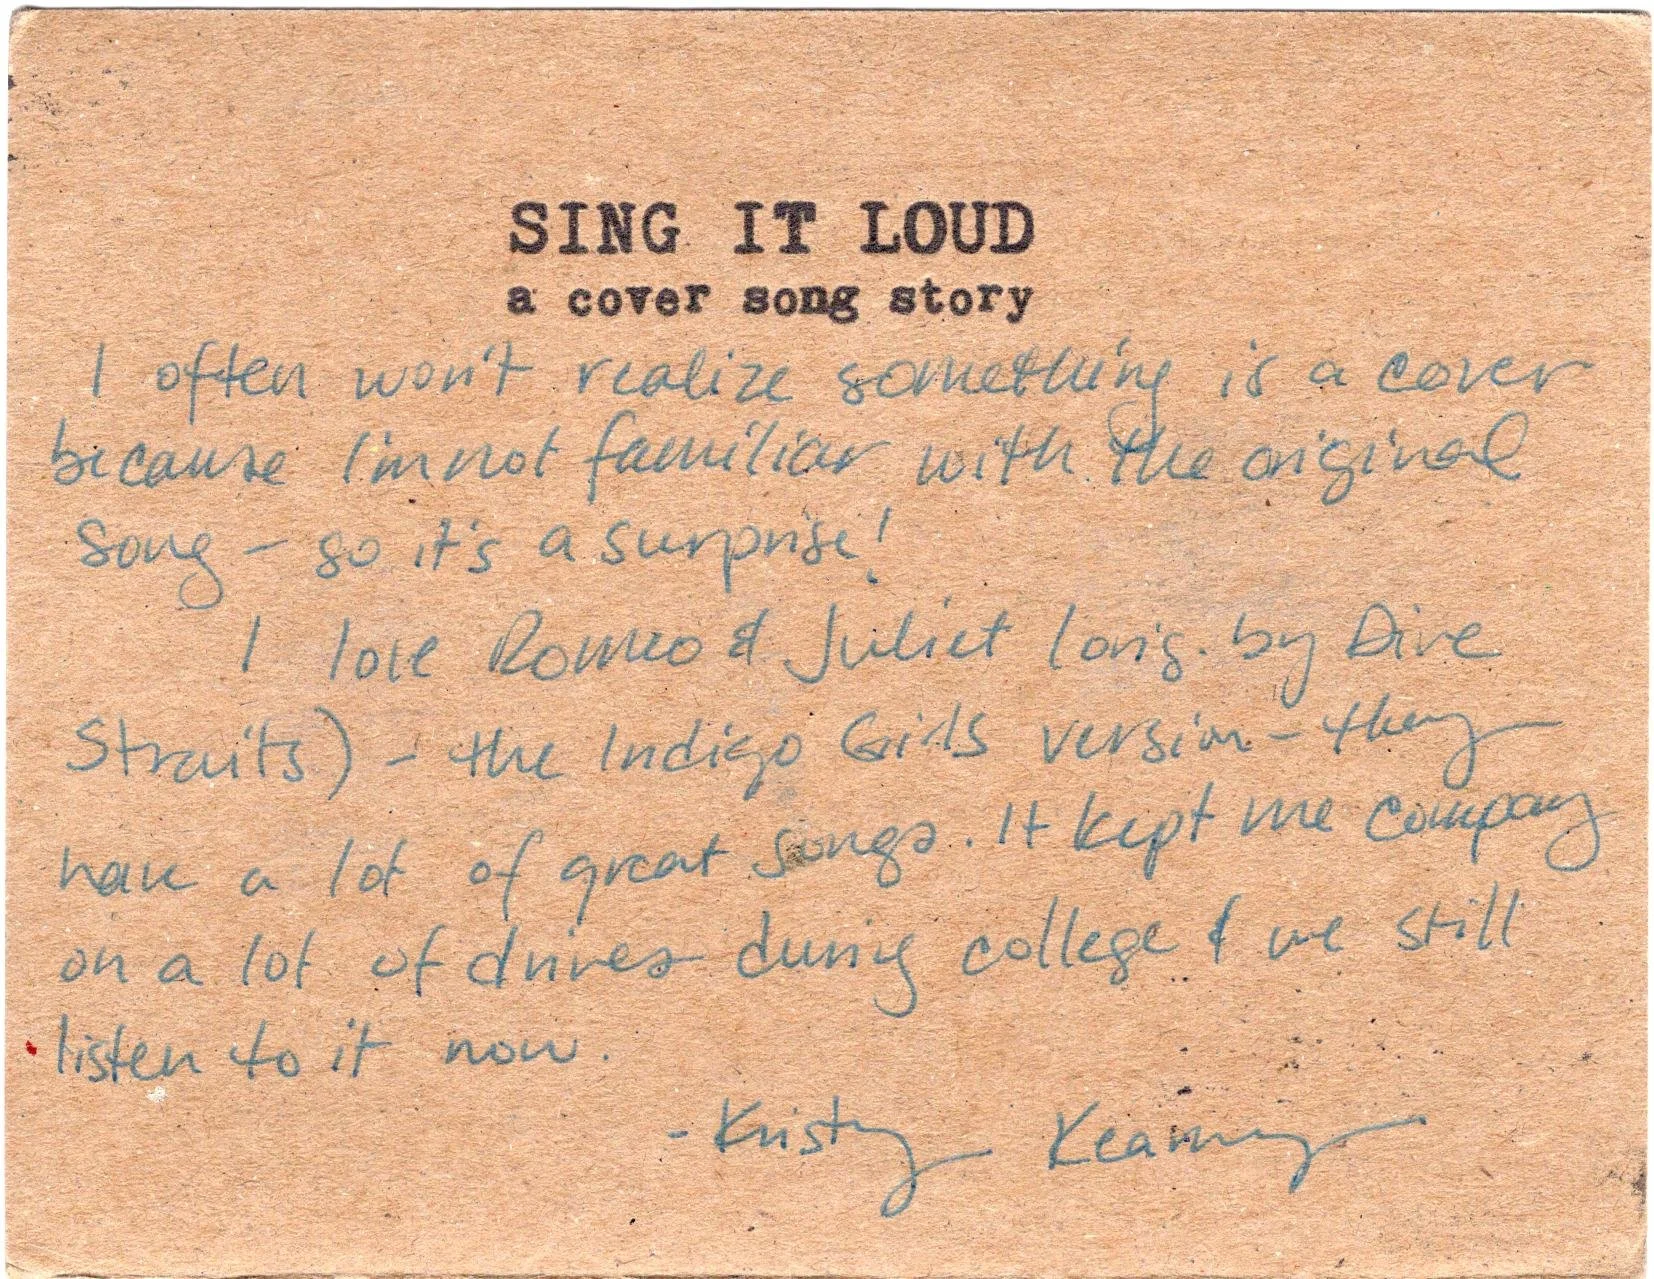 SING IT LOUD
a cover song story
I often won't realize something is a cover
because I'm not familiar with the original
song - so it's a surprise!
I love Romeo & Juliet (orig. by Dire
Straits) - the Indigo Girls version - they
have a lot of great songs. It kept me company
on a lot of drives during college & we still
listen to it now.
- Kristy Kearney